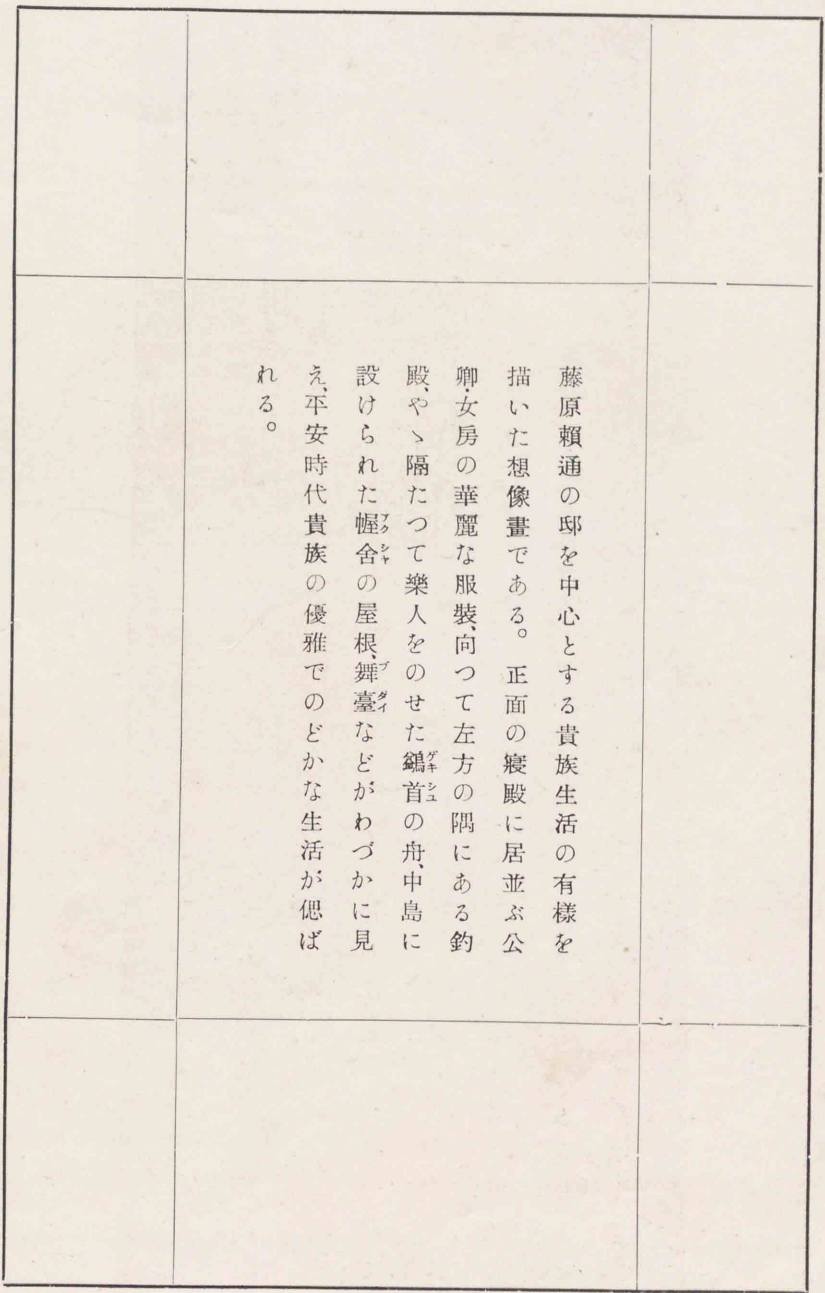 藤原賴通の邸を中心とする貴族生活の有樣を
描いた想像畫である。正面の寢殿に居並ぶ公
卿・女房の華麗な服裝、向つて左方の隅にある釣
殿、やゝ隔たつて樂人をのせた鷁首の舟、中島に
設けられた幄舍の屋根、舞臺などがわづかに見
え、平安時代貴族の優雅でのどかな生活が偲ば
れる。
ゲキシュ
アクシャ
ブダイ